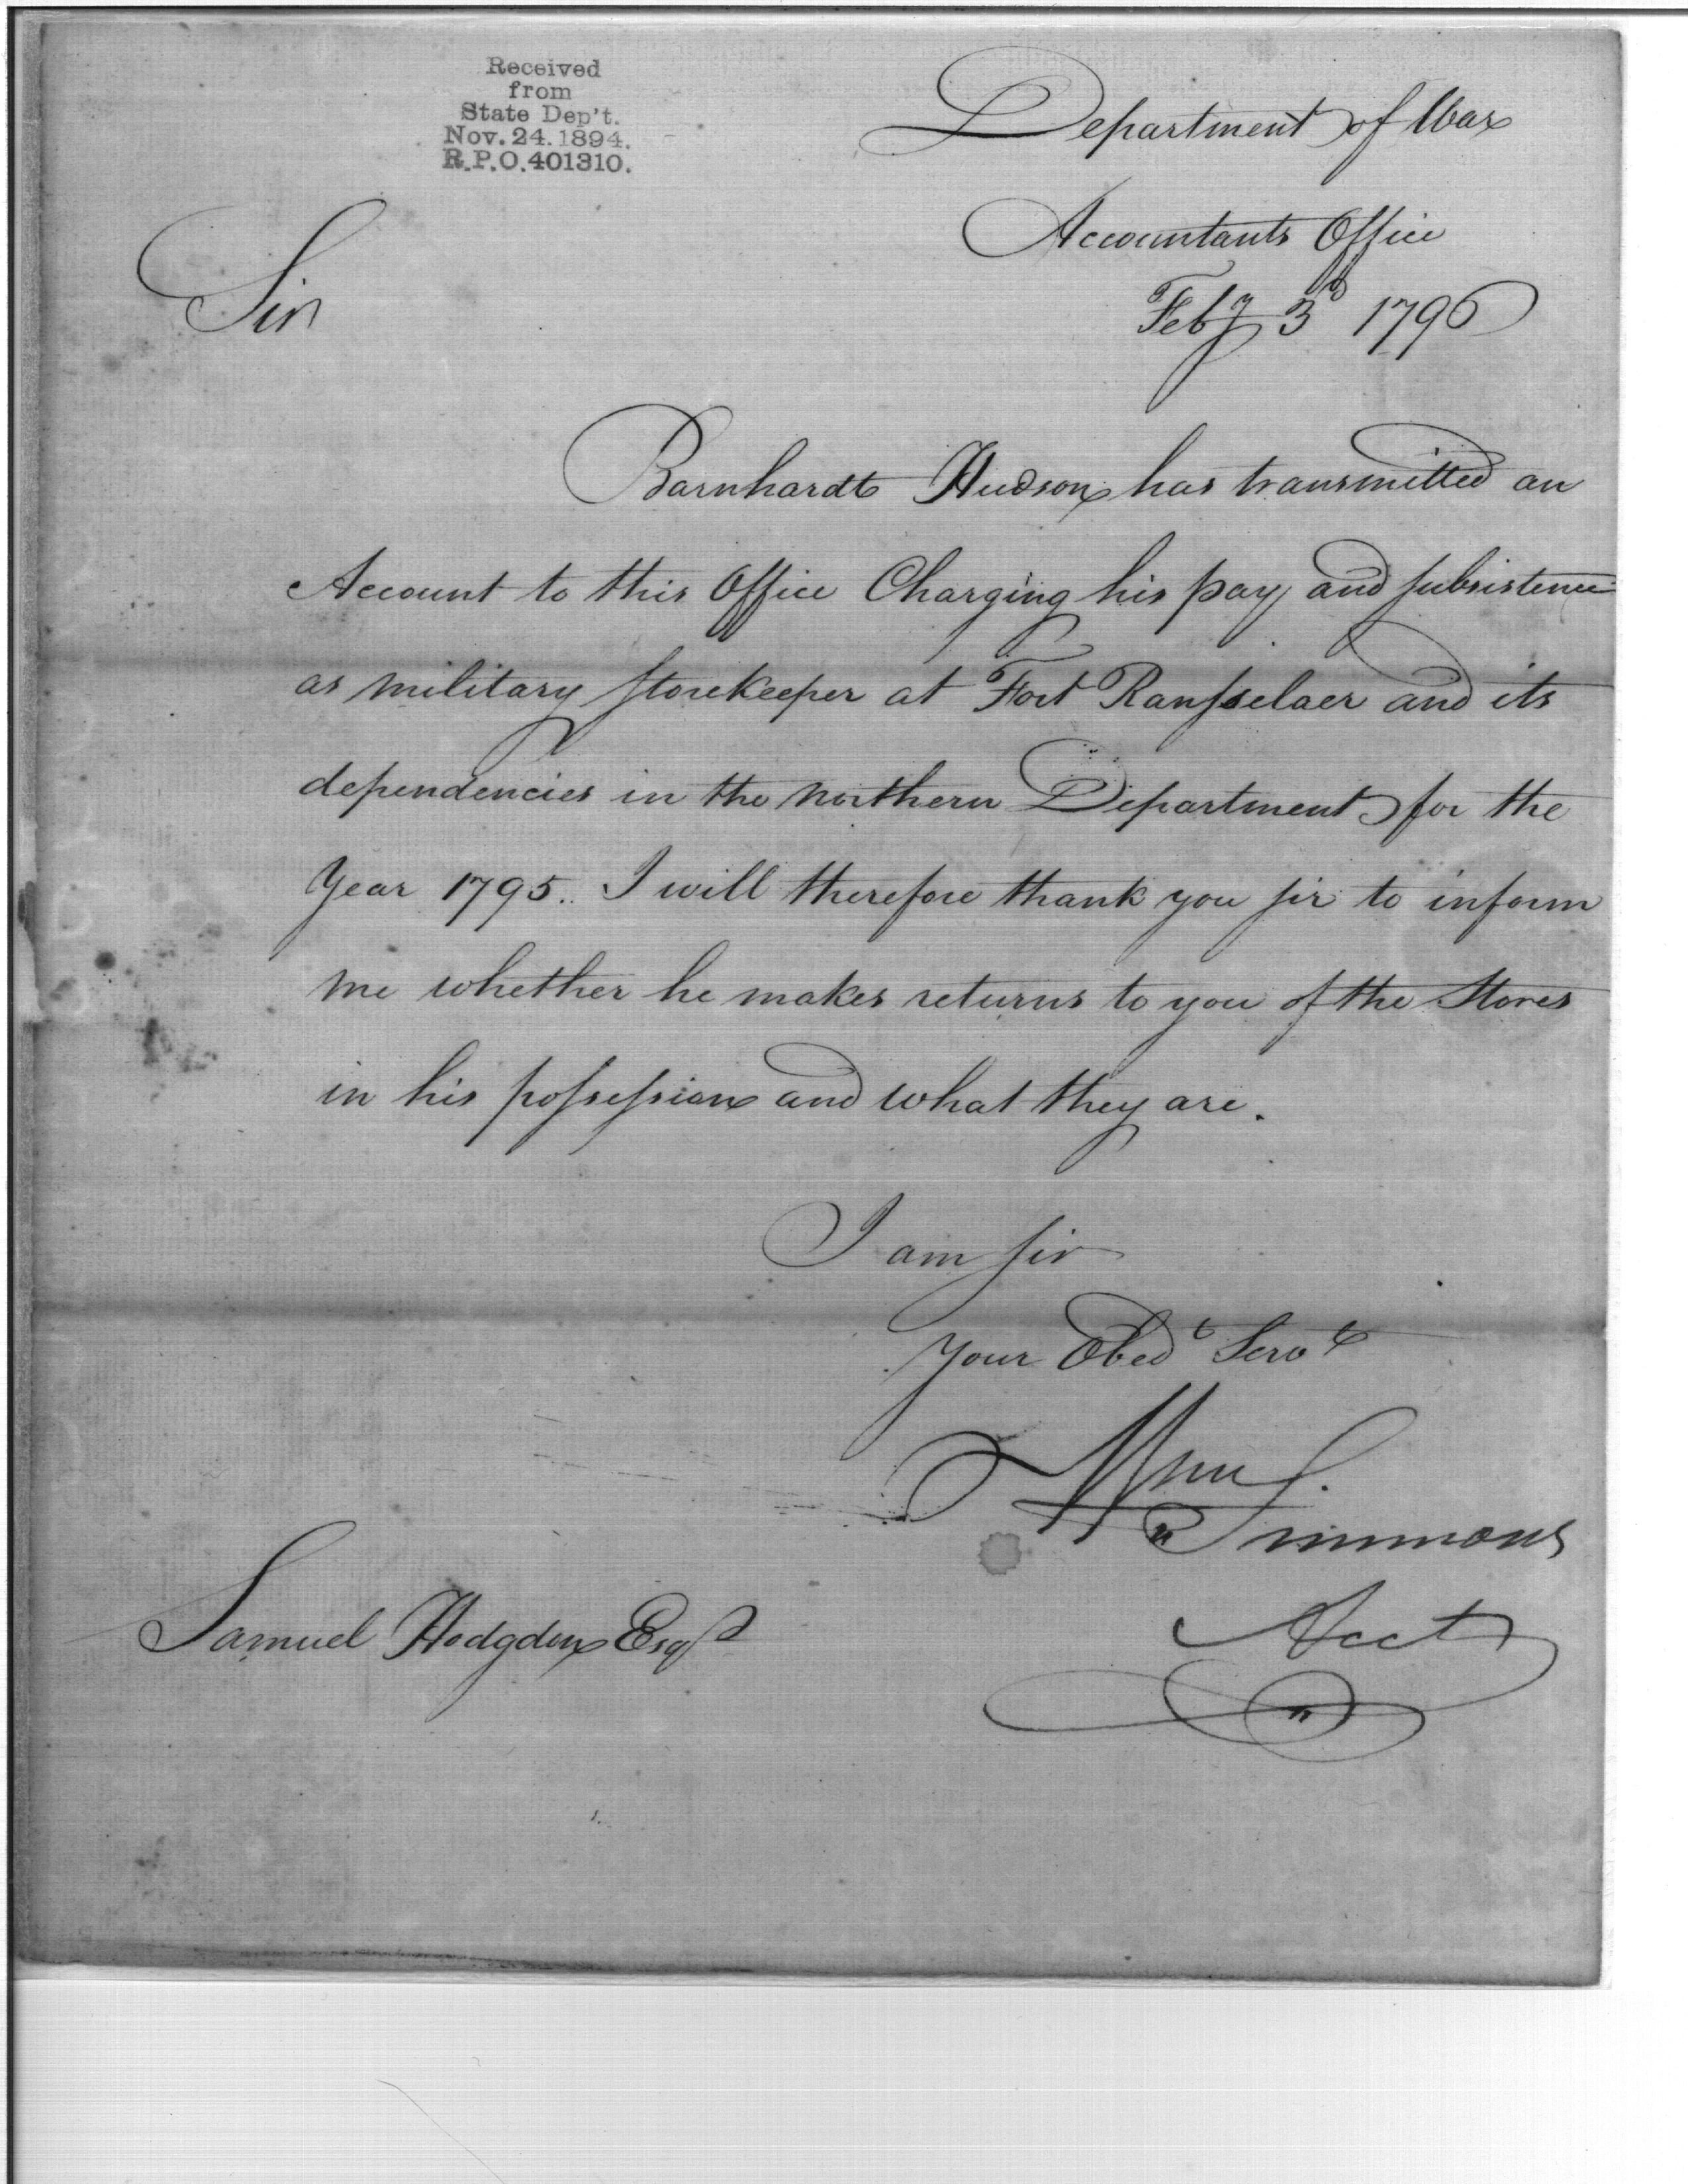 Received
from
State Dep't.
Nov. 24. 1894.
R.P.O. 401310.
Department of War
Accountants Office
Feby 3d 1796
Sir
Barnhardt Hudson has transmitted an
Account to this Office Charging his pay and subsistence
as military Storekeeper at Fort Ransselaer and its
dependencies in the northern Department for the
Year 1795. I will therefore thank you sir to inform
me whether he makes returns to you of the Stores
in his possession and what they are.
I am sir
Your Obedt Servt
Wm Simmons
Acct
Samuel Hodgdon Esqr